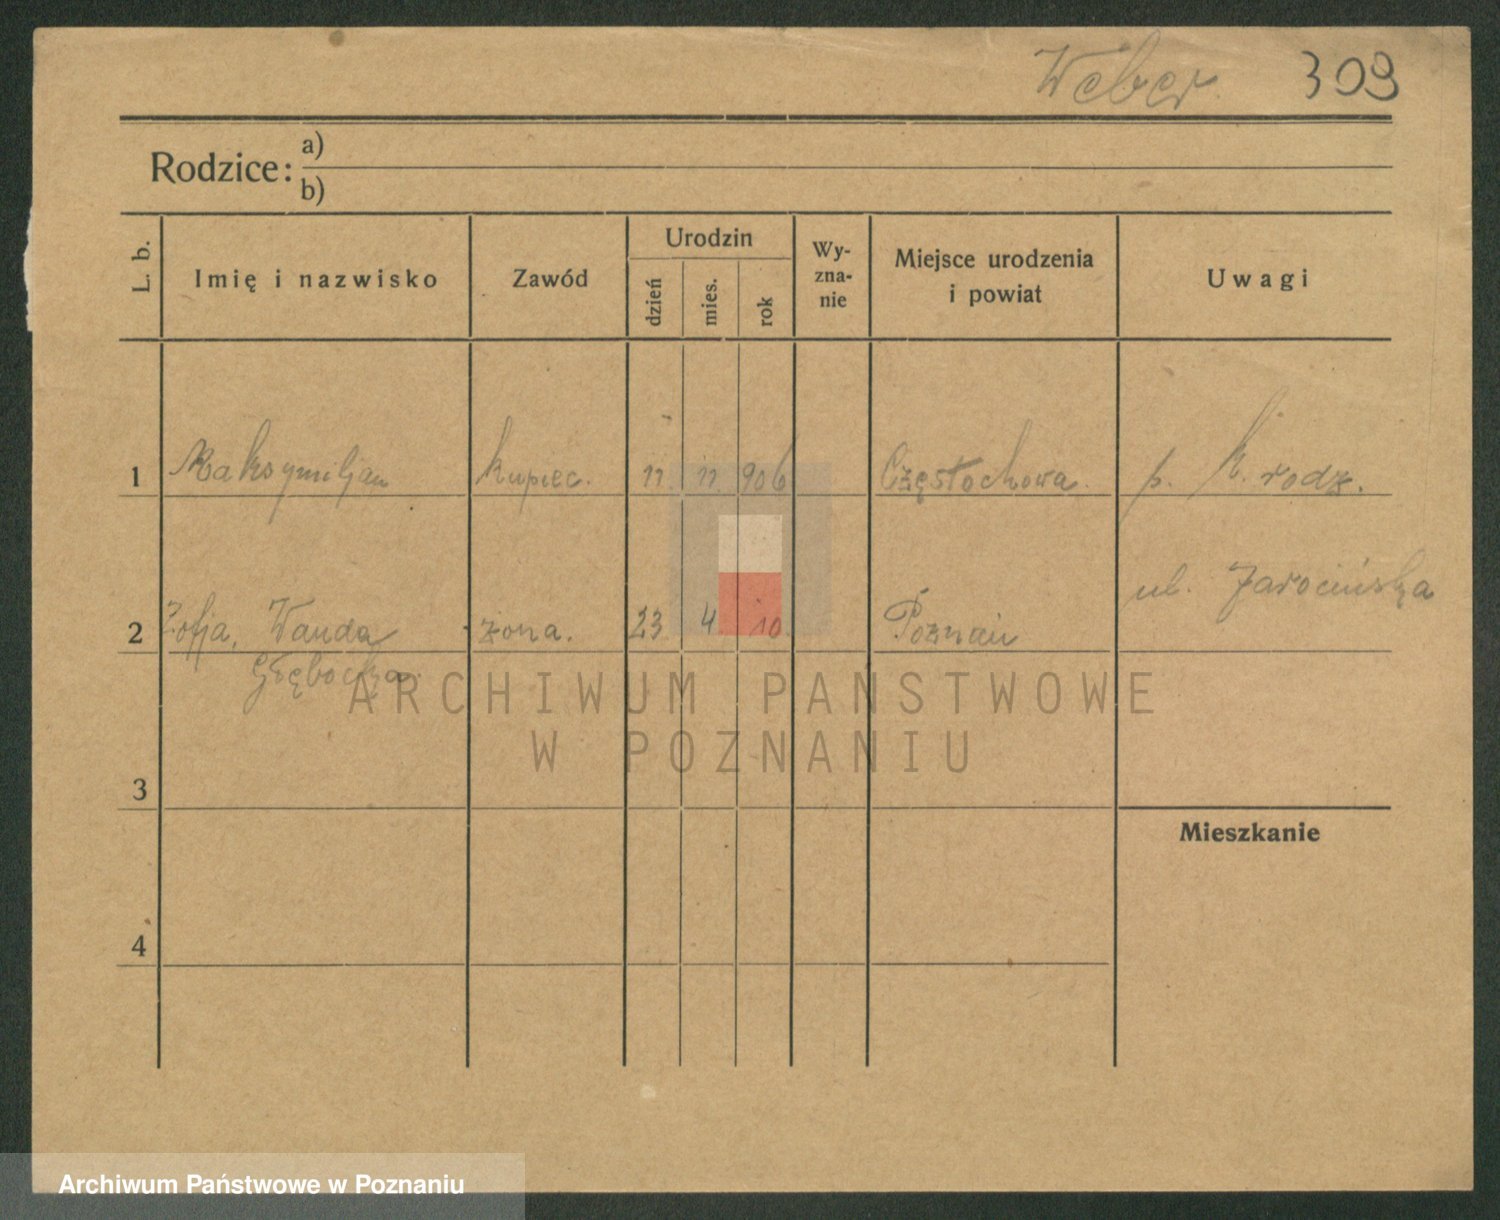 Weber 309
Rodzice: a)
b)
L. b. Imię i nazwisko Zawód Urodzin dzień mies. rok Wy-zna-nie Miejsce urodzenia i powiat Uwagi
1 Maksymiljan kupiec. 11. 11. 906 Częstochowa. p. k. rodz.
ul. Jarocińska
2 Zofja, Wanda żona. 23 4 10 Poznań
Głębocka.
ARCHIWUM PAŃSTWOWE
W POZNANIU
3
Mieszkanie
4
Archiwum Państwowe w Poznaniu